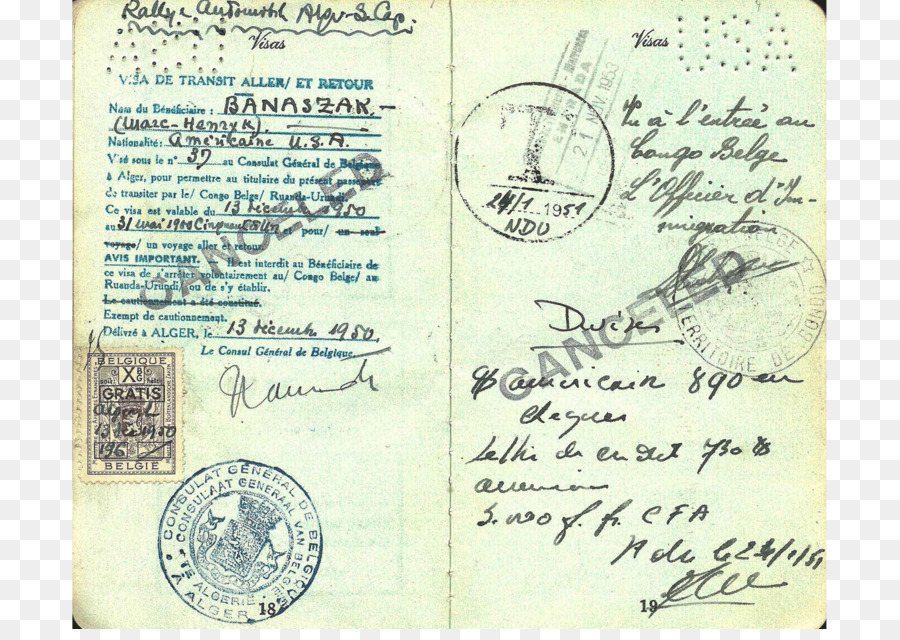 Rallye Automobile Alger-Le Cap.
Visas
VISA DE TRANSIT ALLER/ ET RETOUR
Nom du Bénéficiaire : BANASZAK -
(Marc-Henryk).
Nationalité: Américaine U.S.A.
Visé sous le n° 37 au Consulat Général de Belgique
à Alger, pour permettre au titulaire du présent passeport
de transiter par le/ Congo Belge/ Ruanda-Urundi.
Ce visa est valable du 13 décembre 1950
au 31 mai 1900 cinquante et un et pour/ un seul
voyage/ un voyage aller et retour.
AVIS IMPORTANT. Il est interdit au Bénéficiaire de
ce visa de s'arrêter volontairement au/ Congo Belge/ au
Ruanda-Urundi/ ou de s'y établir.
Le cautionnement a été constitué.
Exempt de cautionnement.
Délivré à ALGER, le 13 décembre 1950.
Le Consul Général de Belgique,
CANCELED
BELGIQUE
GRATIS
13 déc 1950
196
BELGIË
CONSULAT GÉNÉRAL DE BELGIQUE
CONSULAAT GENERAAL VAN BELGIË
ALGÉRIE
ALGER
18
Visas
USA
ENTRADA
21 NOV. 1953
T
24/1 1951
NDU
Vu à l'entrée au
Congo Belge
L'Officier d'Im-
migration
BELGE
TERRITOIRE DE BONDO
CANCELED
Devises
$ américain 890 en
cheques
lettre de credit 730 $
americain
5.000 f. fr. CFA
N du le 24/1/51
19